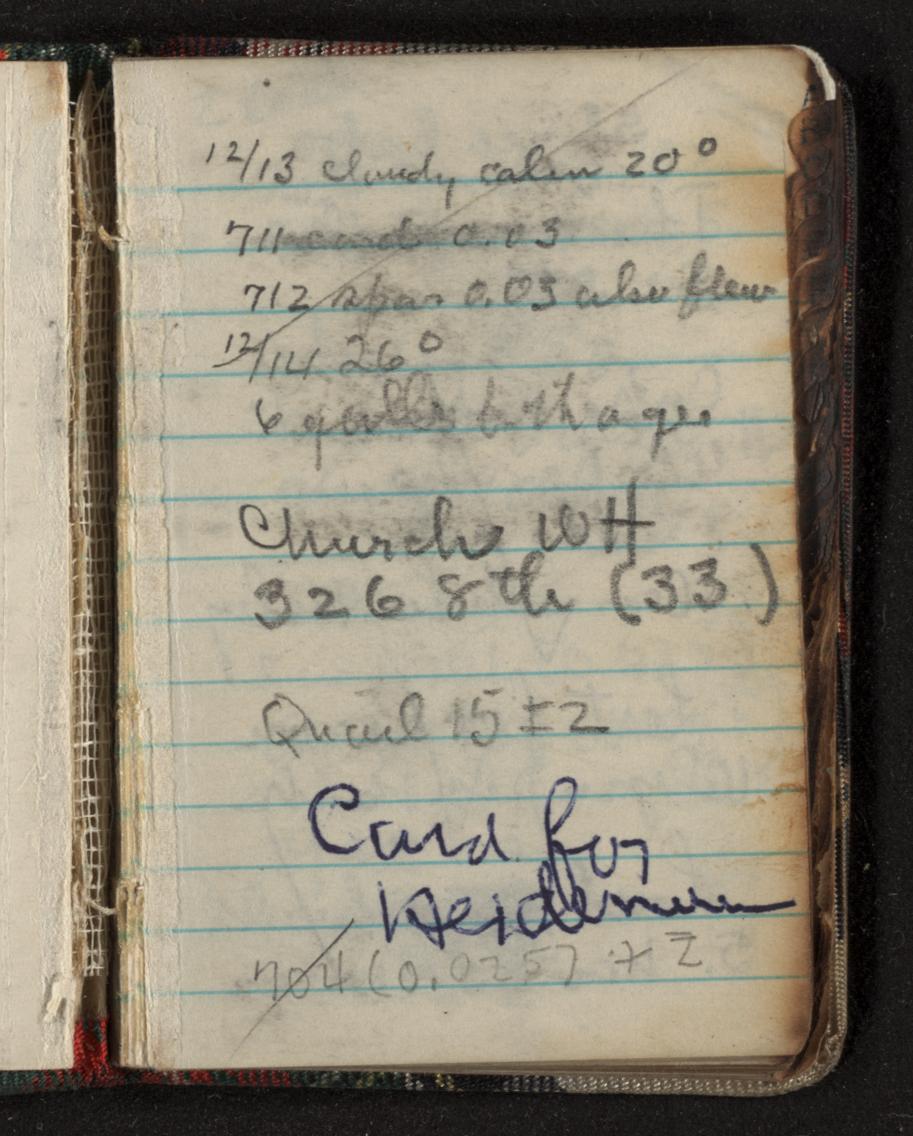 12/13 cloudy calm 20°
711 card 0.03
712 spar 0.03 also flew
12/14 26°
6 gulls both age
Church WH
326 8th (33)
Quail 15 ± 2
Card for
704 (0.025)